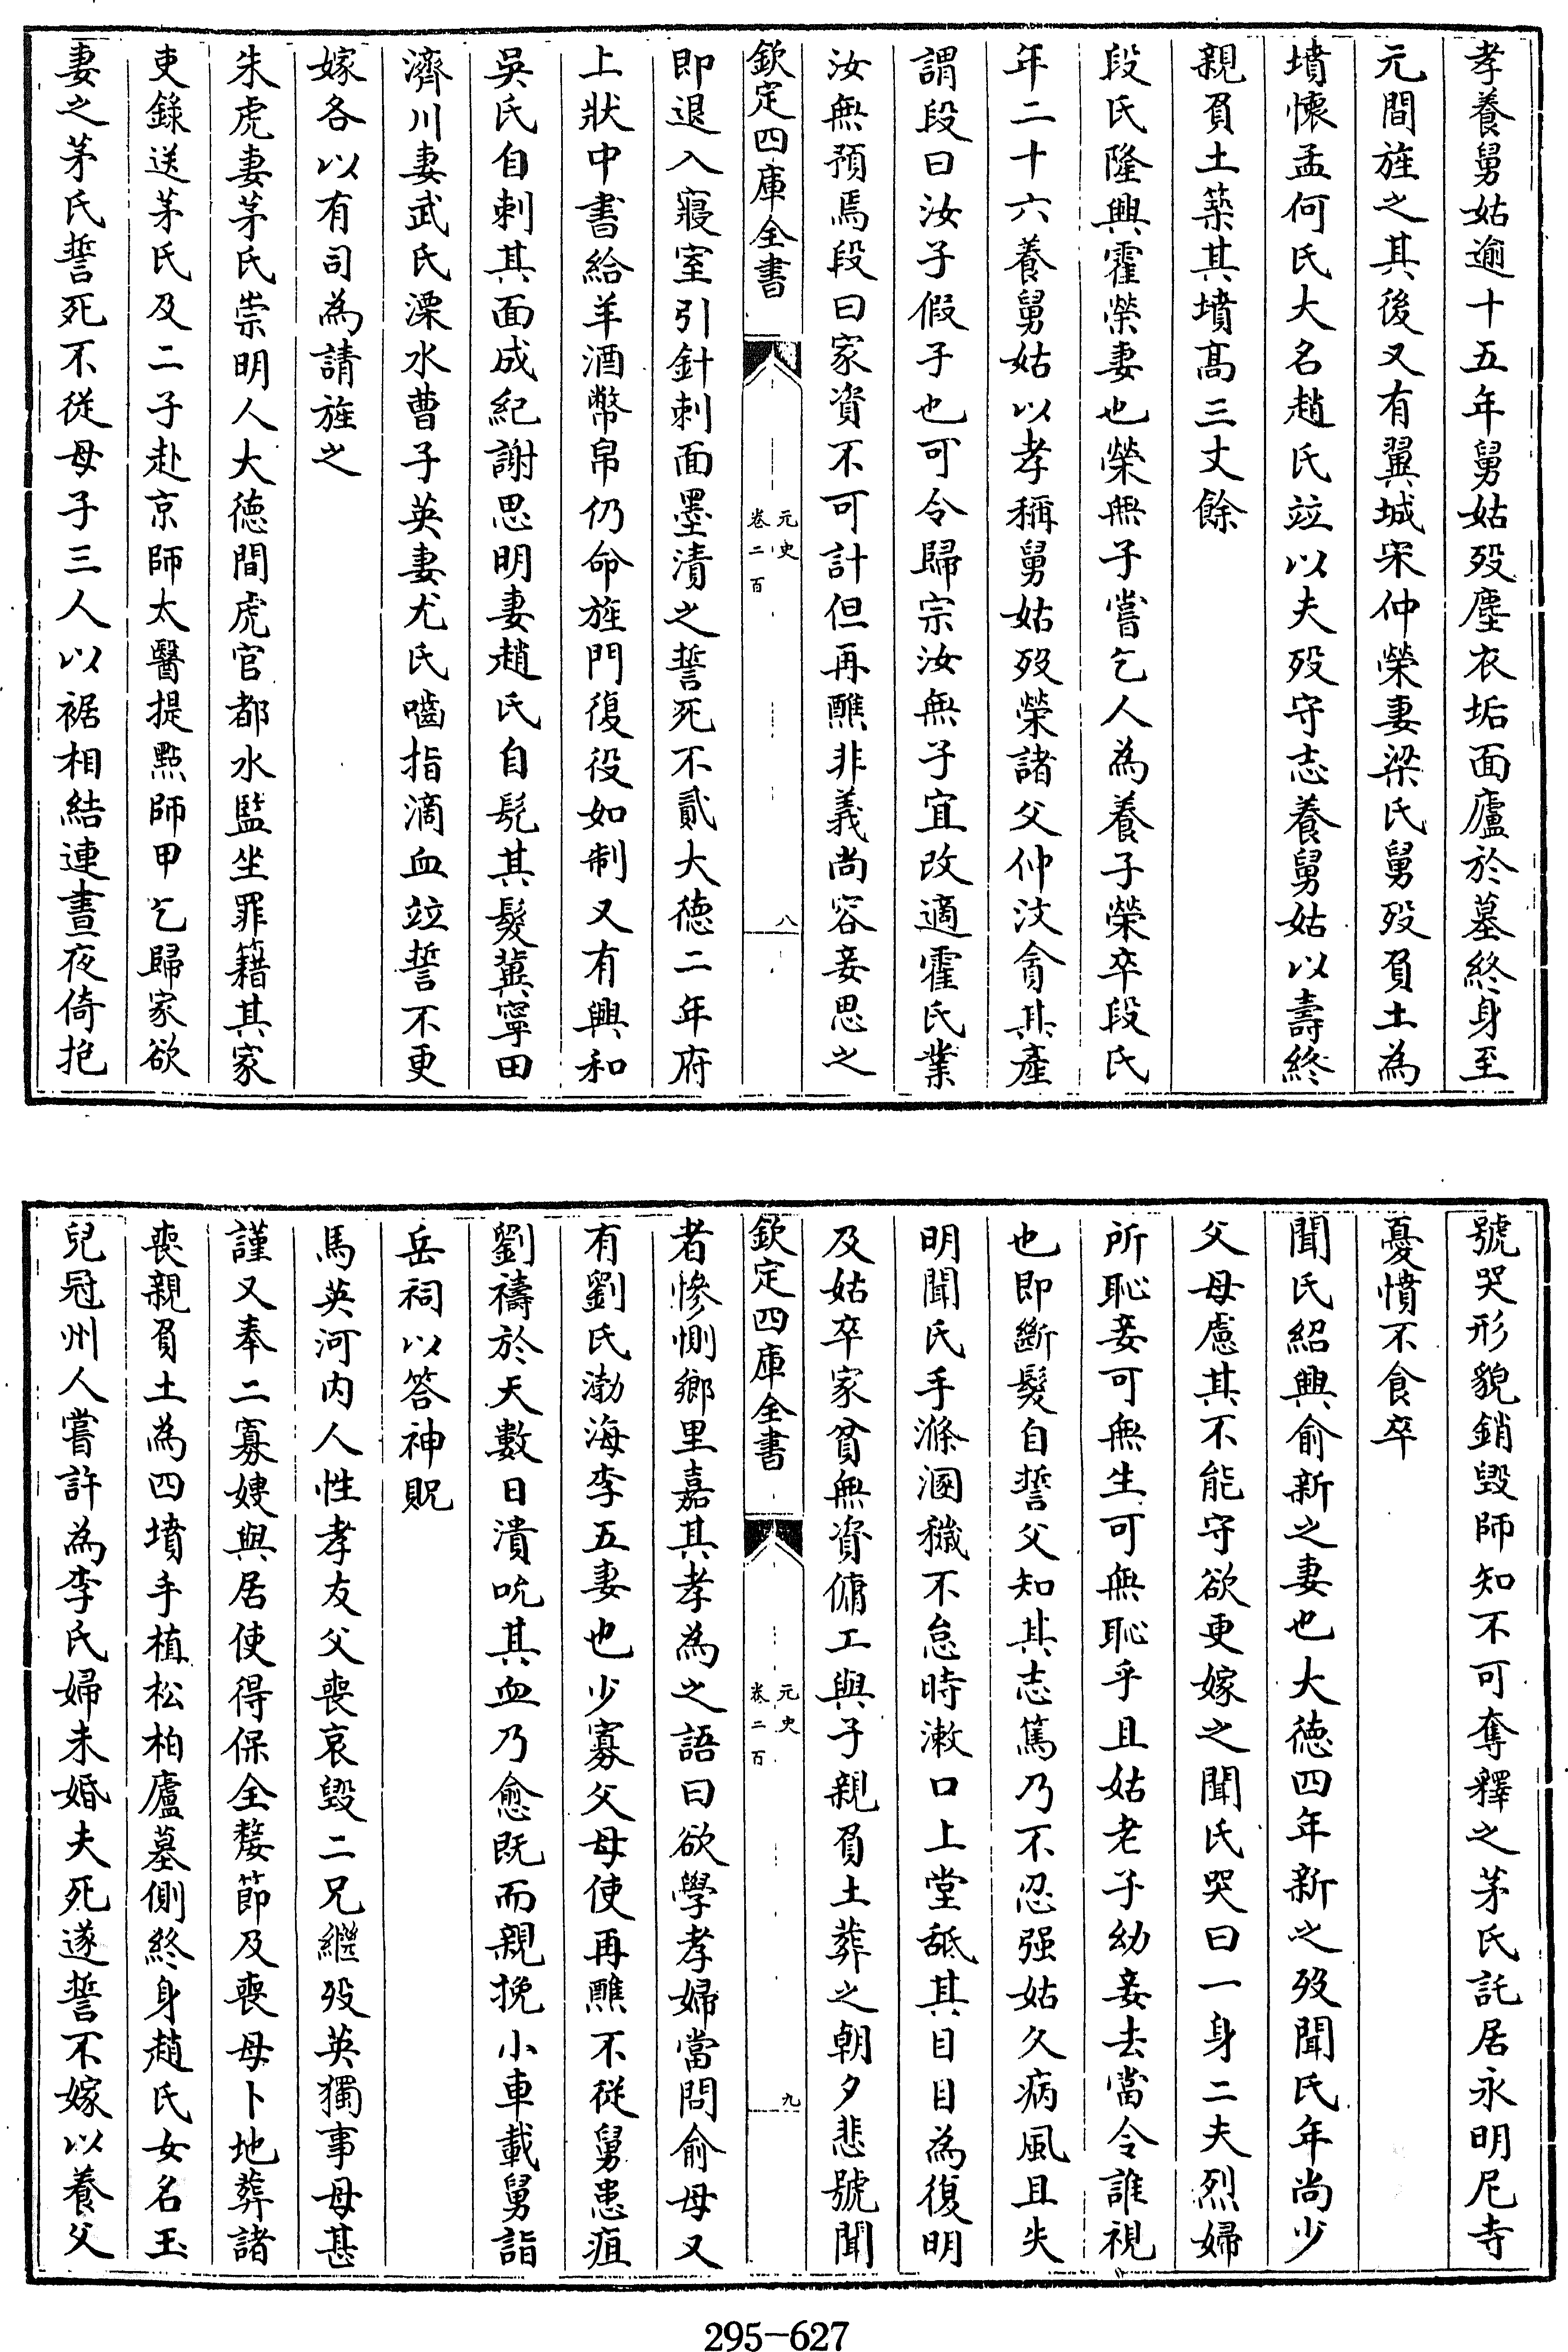 孝養舅姑逾十五年舅姑歿塵衣垢面廬於墓終身至
元間旌之其後又有翼城宋仲榮妻梁氏舅歿負土為
墳懷孟何氏大名趙氏竝以夫歿守志養舅姑以壽終
親負土築其墳髙三丈餘
段氏隆興霍榮妻也榮無子嘗乞人為養子榮卒段氏
年二十六養舅姑以孝稱舅姑歿榮諸父仲汶貪其產
謂段曰汝子假子也可令歸宗汝無子宜改適霍氏業
汝無預焉段曰家資不可計但再醮非義尚容妾思之
欽定四庫全書
元史
卷二百
八
即退入寢室引針刺面墨漬之誓死不貳大徳二年府
上狀中書給羊酒幣帛仍命旌門復役如制又有興和
吳氏自刺其面成紀謝思明妻趙氏自髡其髮冀寧田
濟川妻武氏溧水曹子英妻尤氏嚙指滴血竝誓不更
嫁各以有司為請旌之
朱虎妻茅氏崇明人大徳間虎官都水監坐罪籍其家
吏錄送茅氏及二子赴京師太醫提㸃師甲乞歸家欲
妻之茅氏誓死不從母子三人以裾相結連晝夜倚抱
號哭形貌銷毀師知不可奪釋之茅氏託居永明尼寺
憂憤不食卒
聞氏紹興俞新之妻也大徳四年新之歿聞氏年尚少
父母慮其不能守欲更嫁之聞氏哭曰一身二夫烈婦
所恥妾可無生可無恥乎且姑老子幼妾去當令誰視
也即斷髮自誓父知其志篤乃不忍强姑久病風且失
明聞氏手滌溷穢不怠時漱口上堂舐其目目為復明
及姑卒家貧無資傭工與子親負土葬之朝夕悲號聞
欽定四庫全書
元史
卷二百
九
者慘惻鄉里嘉其孝為之語曰欲學孝婦當問俞母又
有劉氏渤海李五妻也少寡父母使再醮不從舅患疽
劉禱於天數日潰吮其血乃愈既而親挽小車載舅詣
岳祠以答神貺
馬英河内人性孝友父喪哀毀二兄繼歿英獨事母甚
謹又奉二寡嫂與居使得保全嫠節及喪母卜地葬諸
喪親負土為四墳手植松柏廬墓側終身趙氏女名玉
兒冠州人嘗許為李氏婦未婚夫死遂誓不嫁以養父
295-627